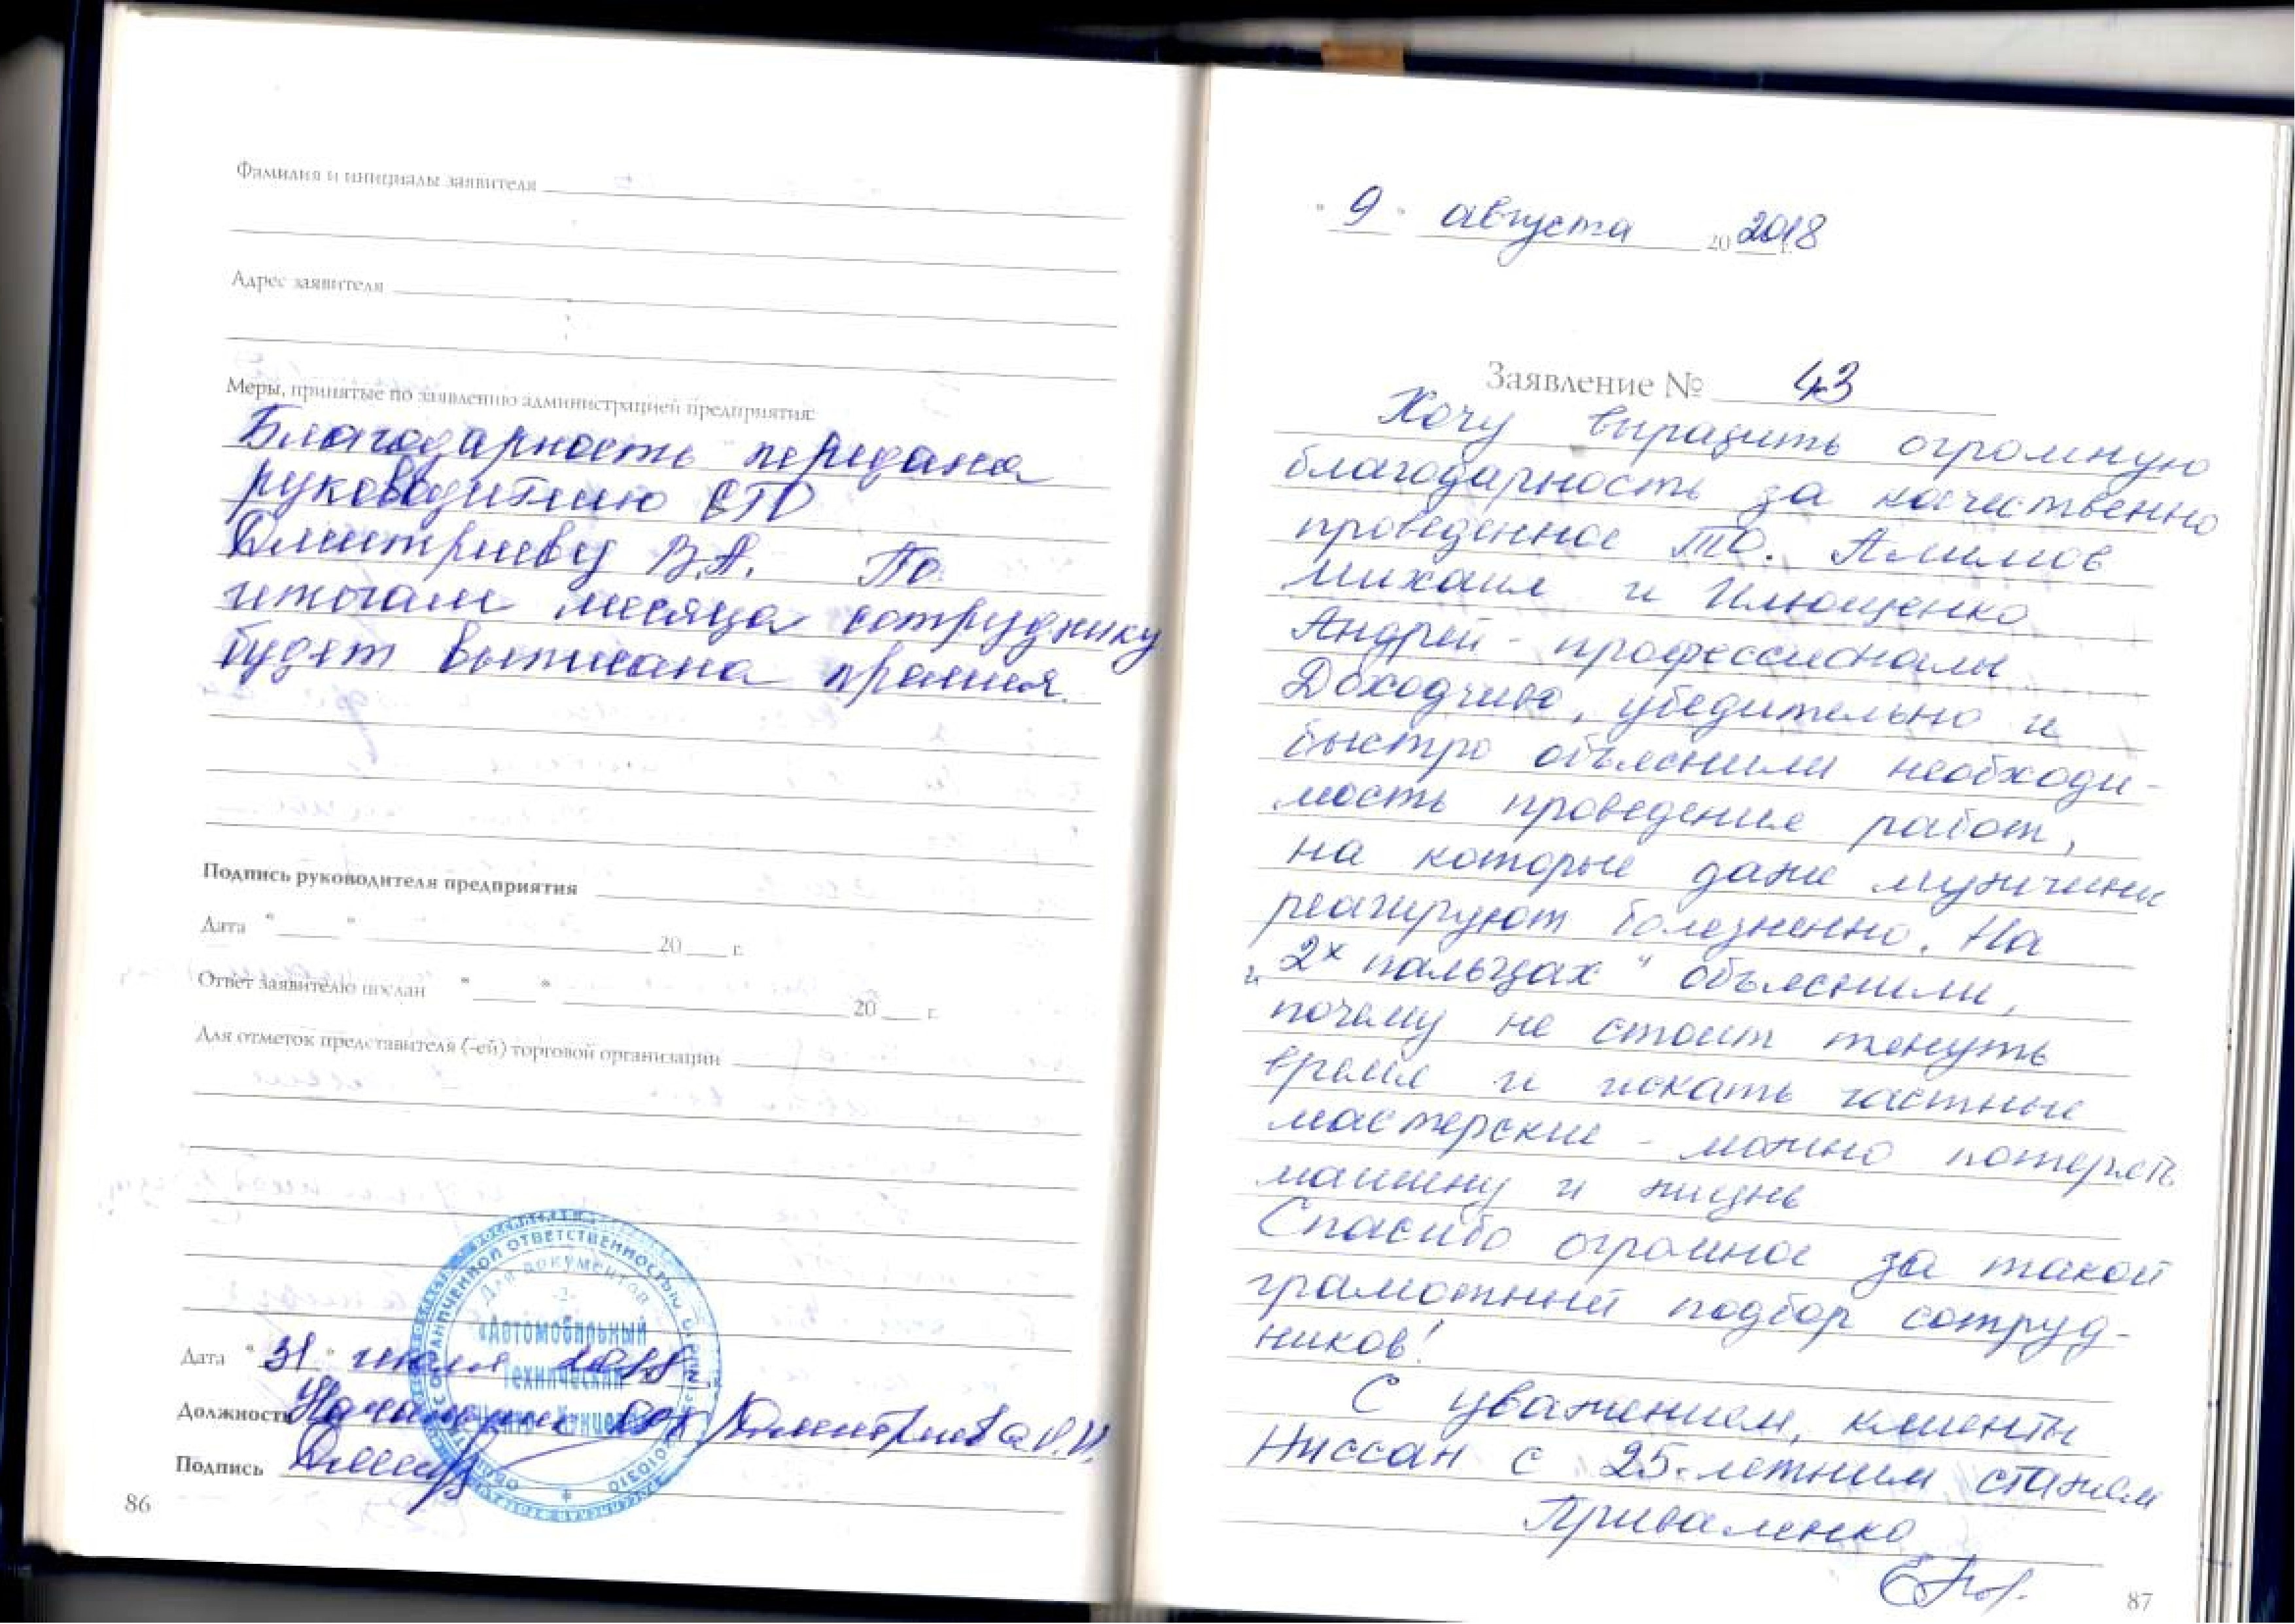 Фамилия и инициалы заявителя
Адрес заявителя
Меры, принятые по заявлению администрацией предприятия:
Благодарность передана
руководителю СТО
Дмитриеву В.А. По
итогам месяца сотруднику
будет выписана премия.
Подпись руководителя предприятия
Дата " " 20 г.
Ответ заявителю послан " " 20 г.
Для отметок представителя (-ей) торговой организации
Дата "31" июля 2018 г.
Должность Начальник
Подпись
ОГРАНИЧЕННОЙ ОТВЕТСТВЕННОСТЬЮ
Для документов
-2-
«Автомобильный
Технический
86
"9" августа 20 2018 г.
Заявление № 43
Хочу выразить огромную
благодарность за качественно
проведенное ТО. Алимов
Михаил и Ильющенко
Андрей - профессионалы
Доходчиво, убедительно и
быстро объяснили необходи-
мость проведения работ,
на которые даже мужчины
реагируют болезненно. На
„2х пальцах" объяснили,
почему не стоит тянуть
время и искать частные
мастерские - можно потерять
машину и жизнь
Спасибо огромное за такой
грамотный подбор сотруд-
ников!
С уважением, клиенты
Ниссан с 25-летним стажем
Приваленко
87